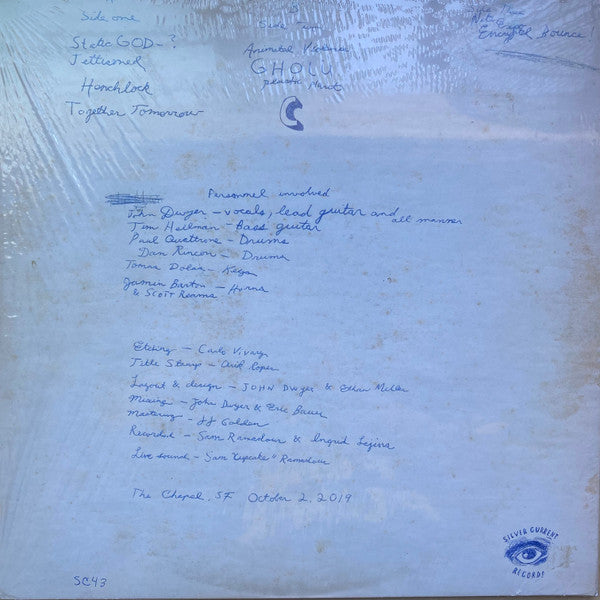 Side one
Static GOD-?
Jettisoned
Henchlock
Together Tomorrow
Animated Violence
GHOLÜ
plastic
Encrypted Bounce!
Personnel involved
John Dwyer – vocals, lead guitar and all manner
Tim Hellman – Bass guitar
Paul Quattrone – Drums
Dan Rincon – Drums
Tomas Dolas – Keys
Jasmin Barton – Horns
& Scott Reams
Etching – Carlo Vivary
Title Stamp – Arik Roper
Layout & design – JOHN Dwyer & Ethan Miller
Mixing – John Dwyer & Eric Bauer
Mastering – JJ Golden
Recorded – Sam Ramadour & Ingrid
Live sound – Sam "Cupcake" Ramadour
The Chapel, SF October 2, 2019
SILVER CURRENT
RECORDS
SC43